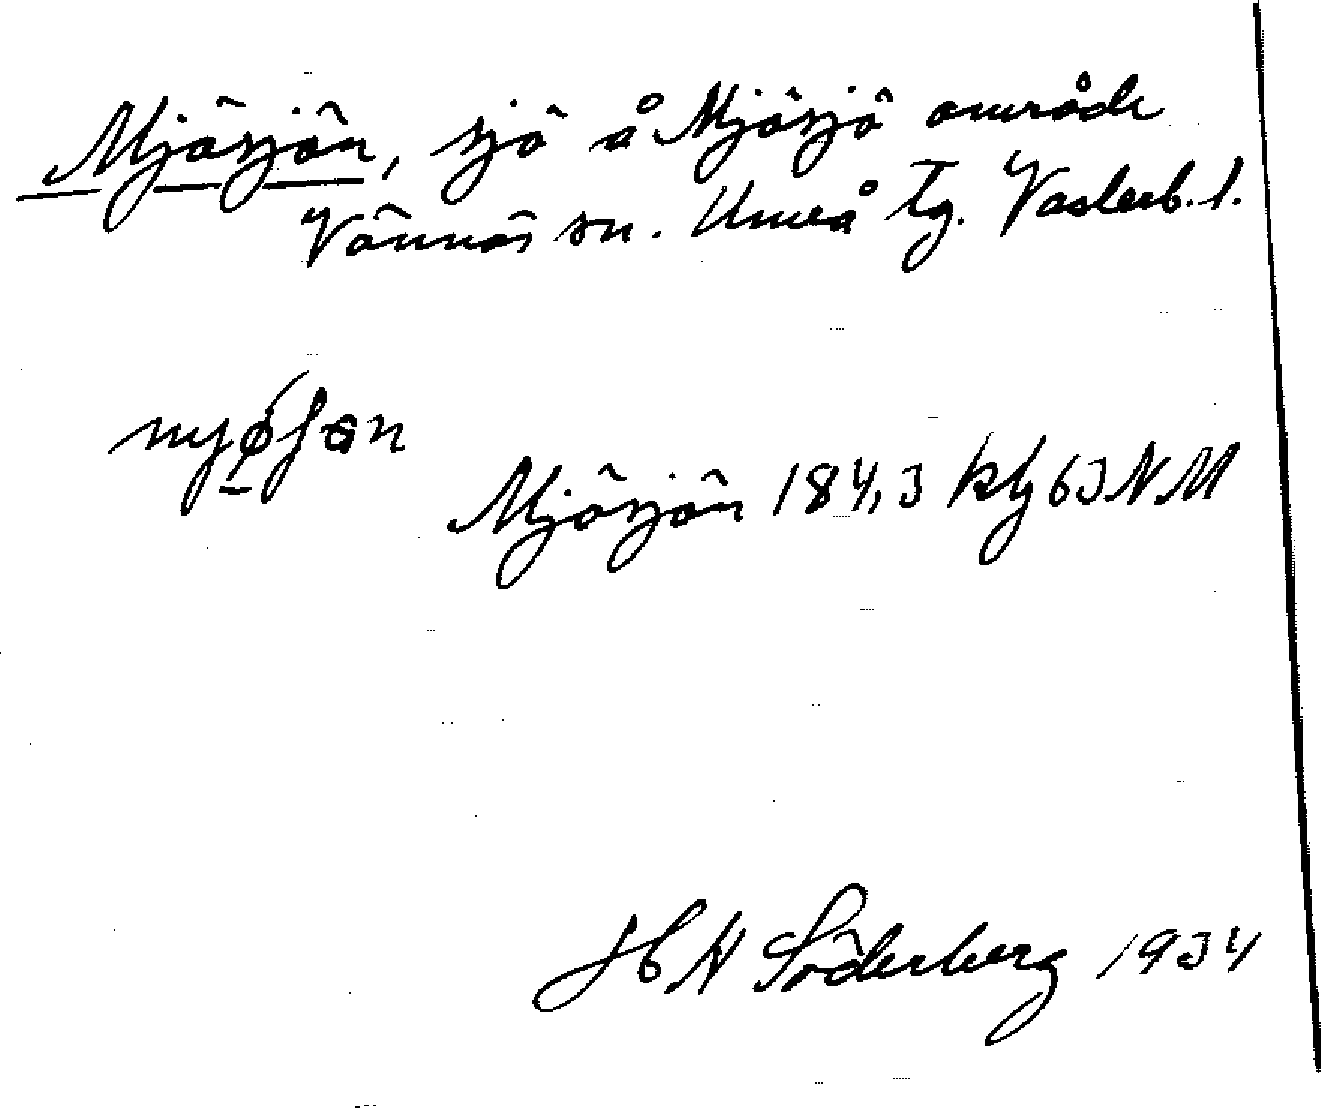 Mjösjön, sjö å Mjösjö område
Vännäs sn. Umeå tg. Västerb. l.
Mjösjön 184,3 kbl 63 NM
H N Söderberg 1934